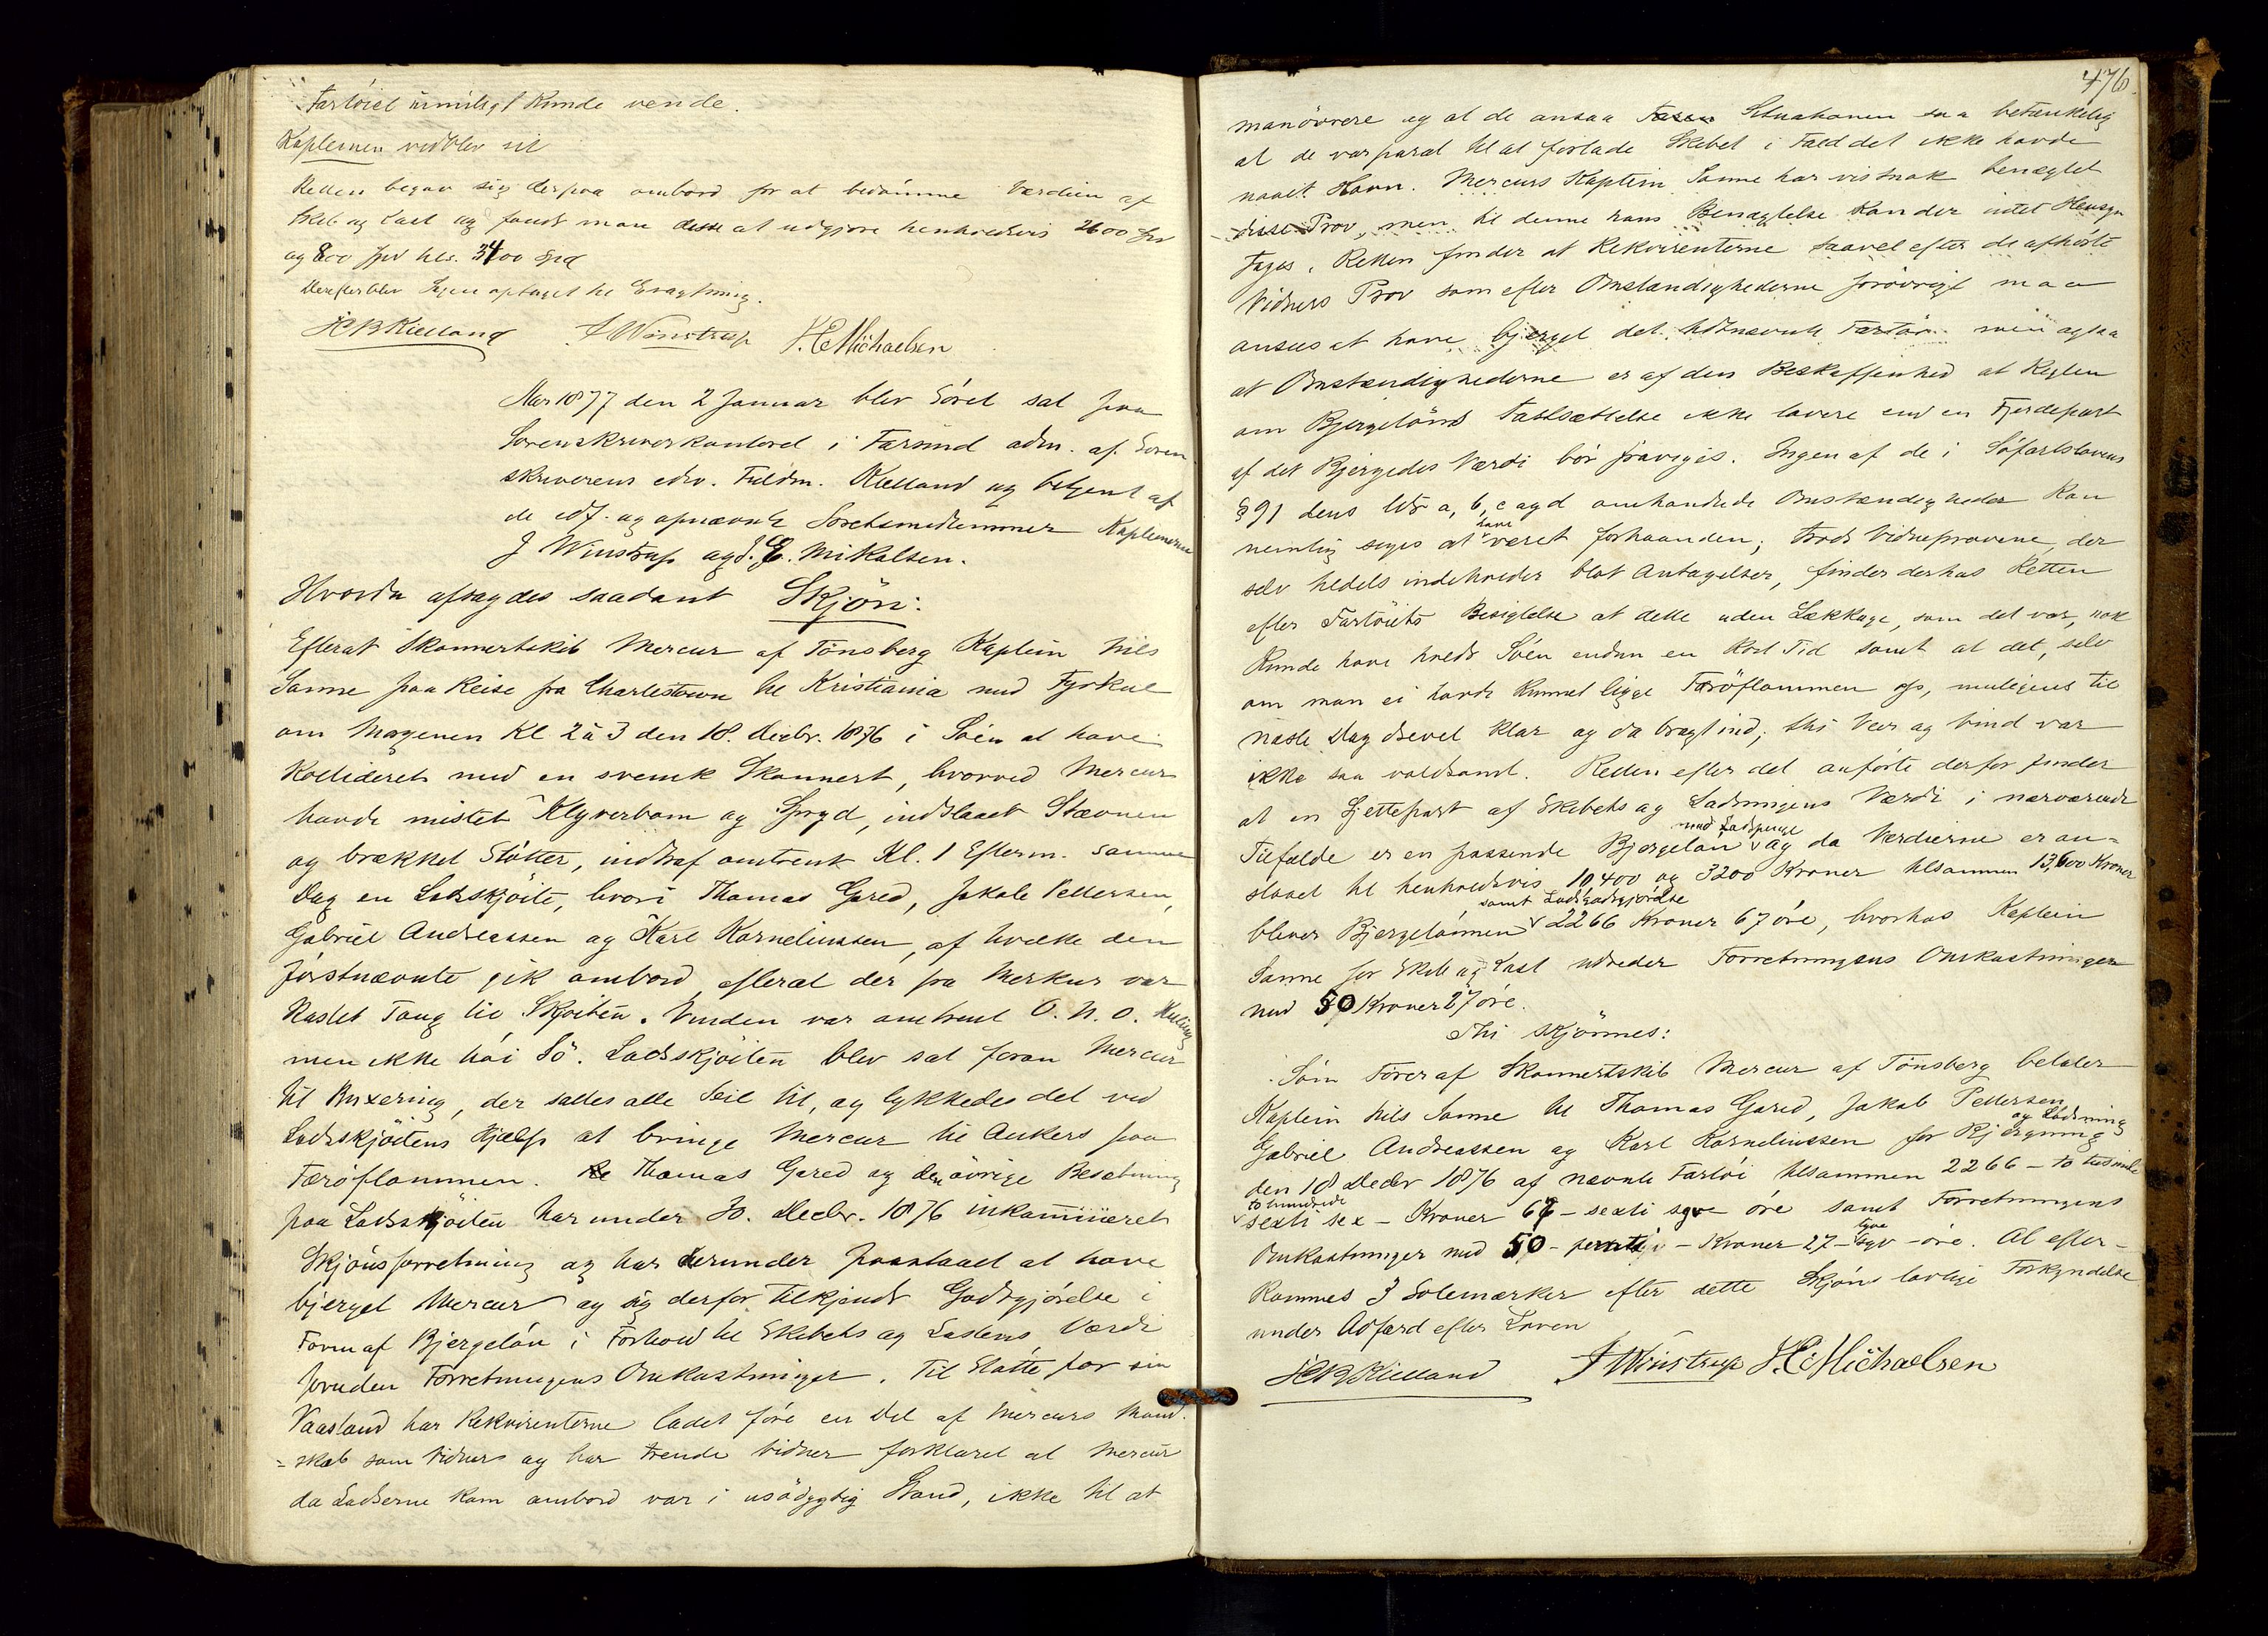 Fartöiet umuligt kunde vende.
Kapteinen vedblev sit
Retten begav sig derpaa ombord for at bedömme Værdien af
Skib og Last og fandt man disse at udgjøre henholdsvis 2600 Spd
og 800 Spd tils. 3400 Spd
Derefter blev Sagen optaget til Eragtning.
HBKielland J Winstrup H.E Michaelsen
Aar 1877 den 2 Januar blev Söret sat paa
Sorenskriverkontoret i Farsund adm. af Soren
skriverens edsv. Fuldm. Kielland og betjent af
de edf. og opnævnte Soretsmedlemmer Kapteinerne
J Winstrup og H. E. Mikalsen.
Hvorda afsagdes saadant Skjön:
Efterat Skonnertskib Mercur af Tönsberg Kaptein Nils
Sanne paa Reise fra Charlestown til Kristiania med Fyrkul
om Morgenen Kl 2 à 3 den 18. Decbr. 1876 i Söen at have
kollideret med en svensk Skonnert, hvorved Mercur
havde mistet Klyverbom og Spryd, indslaaet Stævnen
og brækket Stötter, indtraf omtrent Kl. 1 Efterm. samme
Dag en Lodsskjöite, hvori Thomas Gared, Jakob Pettersen,
Gabriel Andreassen og Karl Korneliussen, af hvilke den
förstnævnte gik ombord, efterat der fra Merkur var
kastet Toug til Skjöiten. Vinden var omtrent O. N. O. Kuling
men ikke höi Sö. Lodsskjöiten blev sat foran Mercur
til Buxering, der sattes alle Seil til, og lykkedes det ved
Lodsskjöitens Hjælp at bringe Mercur til Ankers paa
Færöflommen. Thomas Gared og den övrige Besætning
paa Lodsskjöiten har under 30. Decbr. 1876 inkamineret
Skjönsforretning og har derunder paastaaet at have
bjerget Mercur og sig derfor tilkjendt Godtgjörelse i
Form af Bjergelön i Forhold til Skibets og Lastens Værdi
foruden Forretningens Omkostninger. Til Stötte for sin
Paastand har Rekvirenterne ladet före en Del af Mercurs Mand-
=skab som Vidner og har trende Vidner forklaret at Mercur
da Lodserne kom ombord var i usödygtig Stand, ikke til at
476.
manövrere og at de ansaa Situationen saa betænkelig
at de var parat til at forlade Skibet i Fald det ikke havde
naaet Havn. Mercurs Kaptein Sanne har vistnok benægtet
disse Prov, men til denne hans Benægtelse kan der intet Hensyn
tages. Retten finder at Rekvirenterne saavel efter de afhörte
Vidners Prov som efter Omstændighederne forövrigt maa
ansees at have bjerget det. Udnævnte Fartöi men ogsaa
at Omstændighederne er af den Beskaffenhed at Reglen
om Bjergelöns Fastsættelse ikke lavere end en Fjerdepart
af det Bjergedes Værdi bör fraviges. Ingen af de i Söfartslovens
§ 91 dens litr a, b, c og d omhandlede Omstændigheder kan
nemlig siges at have været forhaanden; trods Vidneprovene, der
selv tildels indeholder blot Antagelser, finder derhos Retten
efter Fartöiets Besigtelse at dette uden Lækkage, som det var, nok
kunde have holdt Söen endnu en kort Tid samt at det, selv
om man ei havde kunnet ligge Færöflommen op, muligens til
næste Dag drevet klar og da bragt ind; thi Veir og Vind var
ikke saa voldsomt. Retten efter det anförte derfor finder
at en Sjettepart af Skibets og Ladningens Værdi i nærværende
Tilfælde er en passende Bjergelön med Lodspenge og da Værdierne er an-
slaaet til henholdsvis 10,400 og 3200 Kroner tilsammen 13,600 Kroner
bliver Bjergelönnen samt Lodsgodtgjörelse 2266 Kroner 67 öre, hvorhos Kaptein
Sanne for Skib og Last udreder Forretningens Omkostninger
med 50 Kroner 27 öre.
Thi skjönnes:
Som Förer af Skonnertskib Mercur af Tönsberg betaler
Kaptein Nils Sanne til Thomas Gared, Jakob Pettersen,
Gabriel Andreassen og Karl Korneliussen for Bjergning og Lodsning
den 18 Decbr 1876 af nævnte Fartöi tilsammen 2266 – to tusinde
to hundrede sexti sex – Kroner 67 – sexti syv öre samt Forretningens
Omkostninger med 50 – femti – Kroner 27 – tyve syv – öre. Alt efter-
kommes 3 Solemærker efter dette Skjöns lovlige Forkyndelse
under Adfærd efter Loven
HBKielland J Winstrup H.E Michaelsen